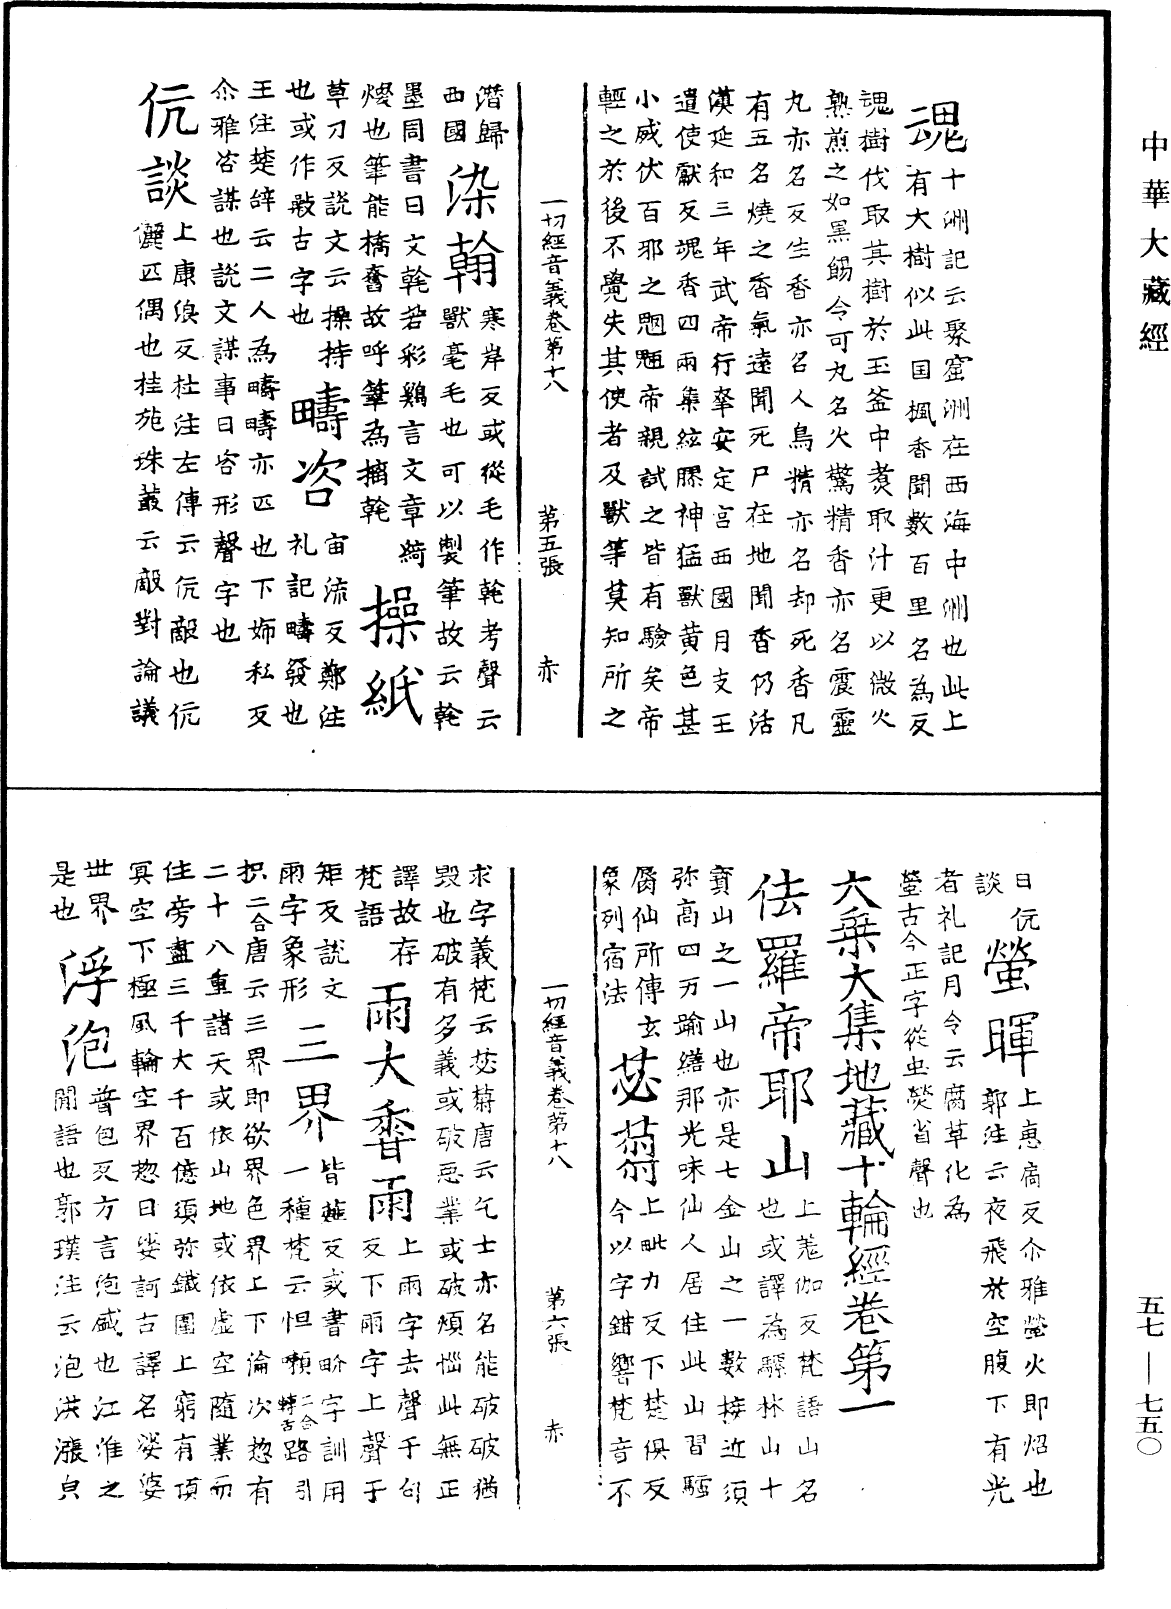 中華大藏經
魂
十洲記云聚窟洲在西海中洲也此上
有大樹似此国楓香聞數百里名為反
魂樹伐取其樹於玉釜中煑取汁更以微火
熟煎之如黑餳令可丸名火驚精香亦名震靈
丸亦名反生香亦名人鳥精亦名却死香凡
有五名燒之香氣遠聞死尸在地聞香仍活
漢延和三年武帝行幸安定宮西國月支王
遣使獻反魂香四兩集絃膠神猛獸黃色甚
小威伏百邪之魍魎帝親試之皆有驗矣帝
輕之於後不覺失其使者及獸等莫知所之
一切經音義卷第十八　第五張　赤
潛歸西國
染翰
寒岸反或從毛作毦考聲云
獸毫毛也可以製筆故云毦
墨周書曰文毦若彩鷄言文章綺
㸌也筆能橋奮故呼筆為摛毦
操紙
草刀反說文云操持
也或作敽古字也
疇咨
宙流反鄭注
礼記疇發也
王注楚辞云二人為疇疇亦匹也下姊私反
尒雅咨謀也説文謀事曰咨形聲字也
伉談
上康浪反杜注左傳云伉敵也伉
儷匹偶也桂苑珠叢云敵對論議
曰伉談
螢暉
上惠扃反尒雅螢火即炤也
郭注云夜飛於空腹下有光
者礼記月令云腐草化為
螢古今正字從虫熒省聲也
大乗大集地藏十輪經卷第一
佉羅帝耶山
上羗伽反梵語山名
也或譯為騾林山十
寳山之一山也亦是七金山之一數接近須
弥高四万踰繕那光味仙人居住此山習驢
脣仙所傳玄象列宿法
苾蒭
上毗力反下楚俱反
今以字錯響梵音不
一切經音義卷第十八　第六張　赤
求字義梵云苾蒭唐云乞士亦名能破破猶
毀也破有多義或破惡業或破煩惱此無正
譯故存梵語
雨大香雨
上雨字去聲于句
反下雨字上聲于
矩反説文雨字象形
三界
皆薤反或書畍字訓用
一種梵云怛㘑二合轉舌路引
枳二合唐云三界即欲界色界上下淪次惣有
二十八重諸天或依山地或依虛空隨業而
住旁盡三千大千百億須弥鐵圍上窮有頂
冥空下極風輪空界惣曰娑訶古譯名娑婆
世界是也
浮泡
普包反方言泡盛也江淮之
間語也郭璞注云泡洪漲皃
五七—七五〇